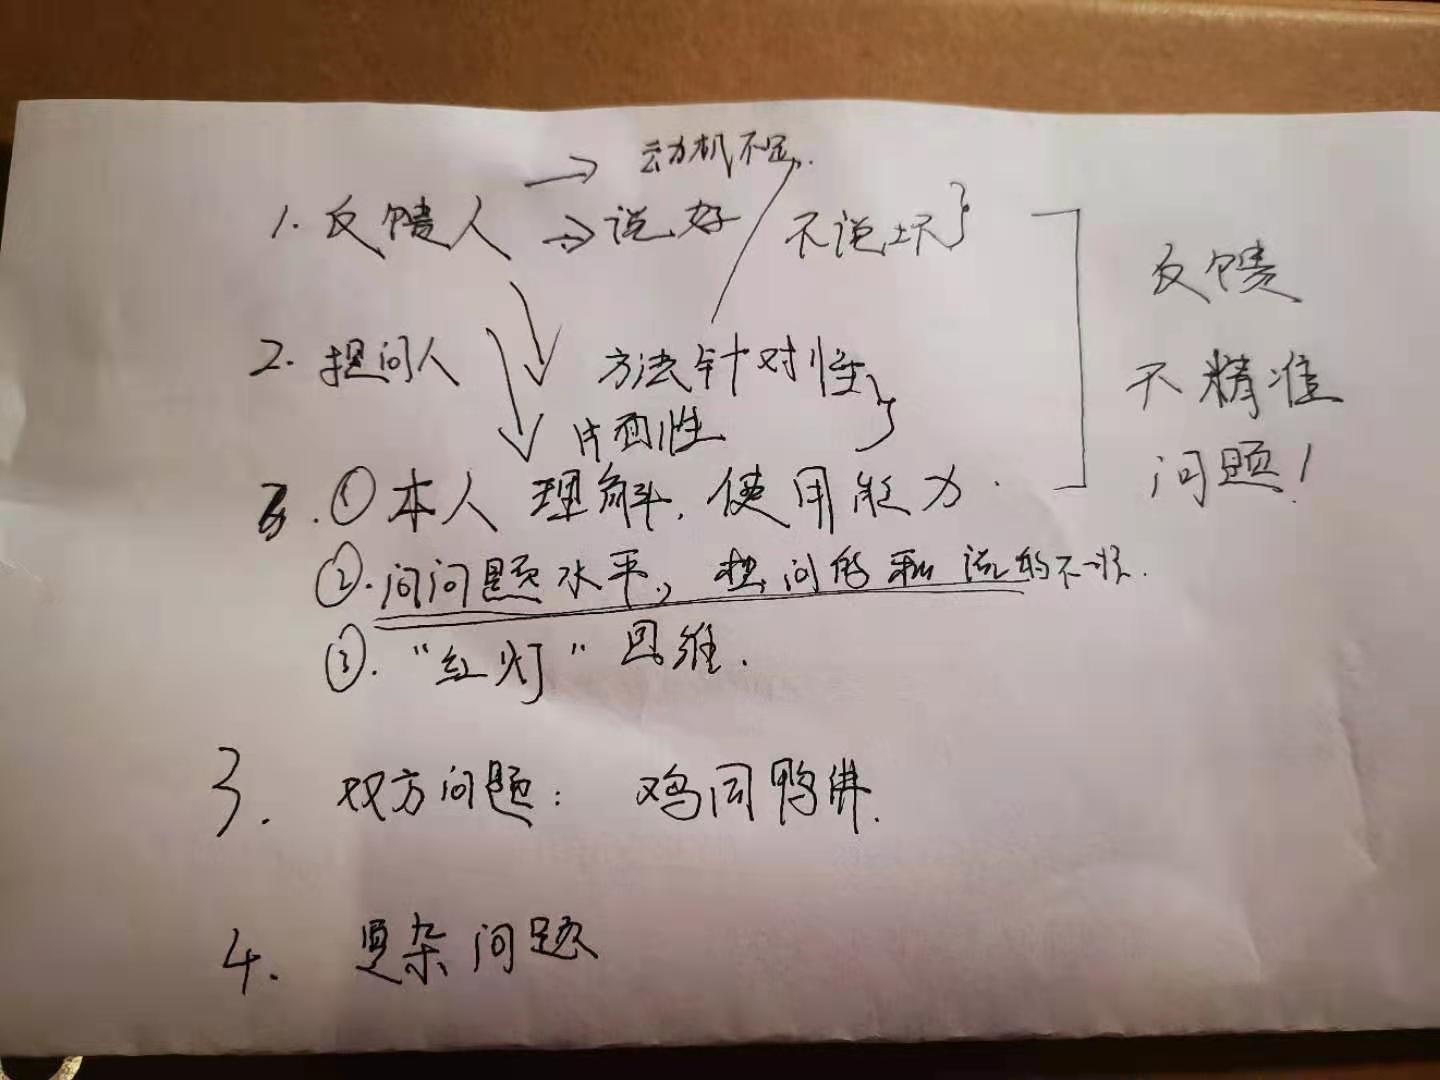 → 动机不足.
1. 反馈人 → 说好 / 不说坏 }
反馈
不精准
问题!
2. 提问人
方法针对性 }
片面性
① 本人理解, 使用能力.
②. 问问题水平, 想问的和说的不一样.
③. "红灯"思维.
3. 双方问题: 鸡同鸭讲.
4. 复杂问题